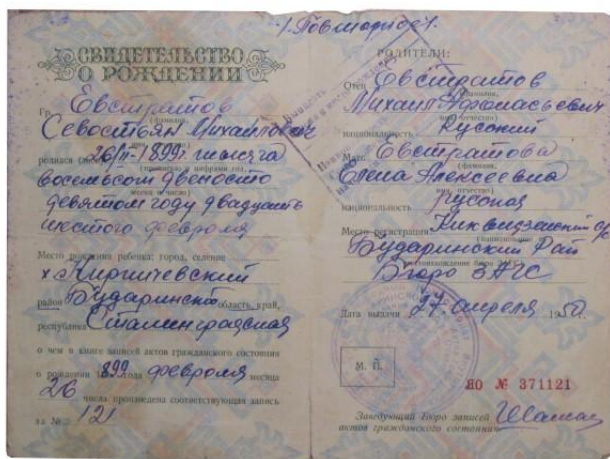 /Повторное/.
СВИДЕТЕЛЬСТВО
О РОЖДЕНИИ
Гр. Евстратов
(фамилия,
Севостьян Михайлович
имя, отчество)
родился 26/II-1899г. тысяча
(прописью и цифрами год,
восемьсот девяносто
месяц и число)
девятом году двадцать
шестого февраля
Место рождения ребенка: город, селение
х. Киричевский
район Бударинский область, край,
республика Сталинградская
о чем в книге записей актов гражданского состояния
о рождении 1899 года февраля месяца
26 числа произведена соответствующая запись
за № 121
РОДИТЕЛИ:
Отец Евстратов
(фамилия,
Михаил Афанасьевич
имя, отчество)
национальность Русский
Мать Евстратова
(фамилия,
Елена Алексеевна
имя, отчество)
национальность русская
Место регистрации
Бударинский Рай
Бюро ЗАГС
Дата выдачи 27 апреля 1950 г.
М. П.
ЯО № 371121
Заведующий Бюро записей
актов гражданского состояния